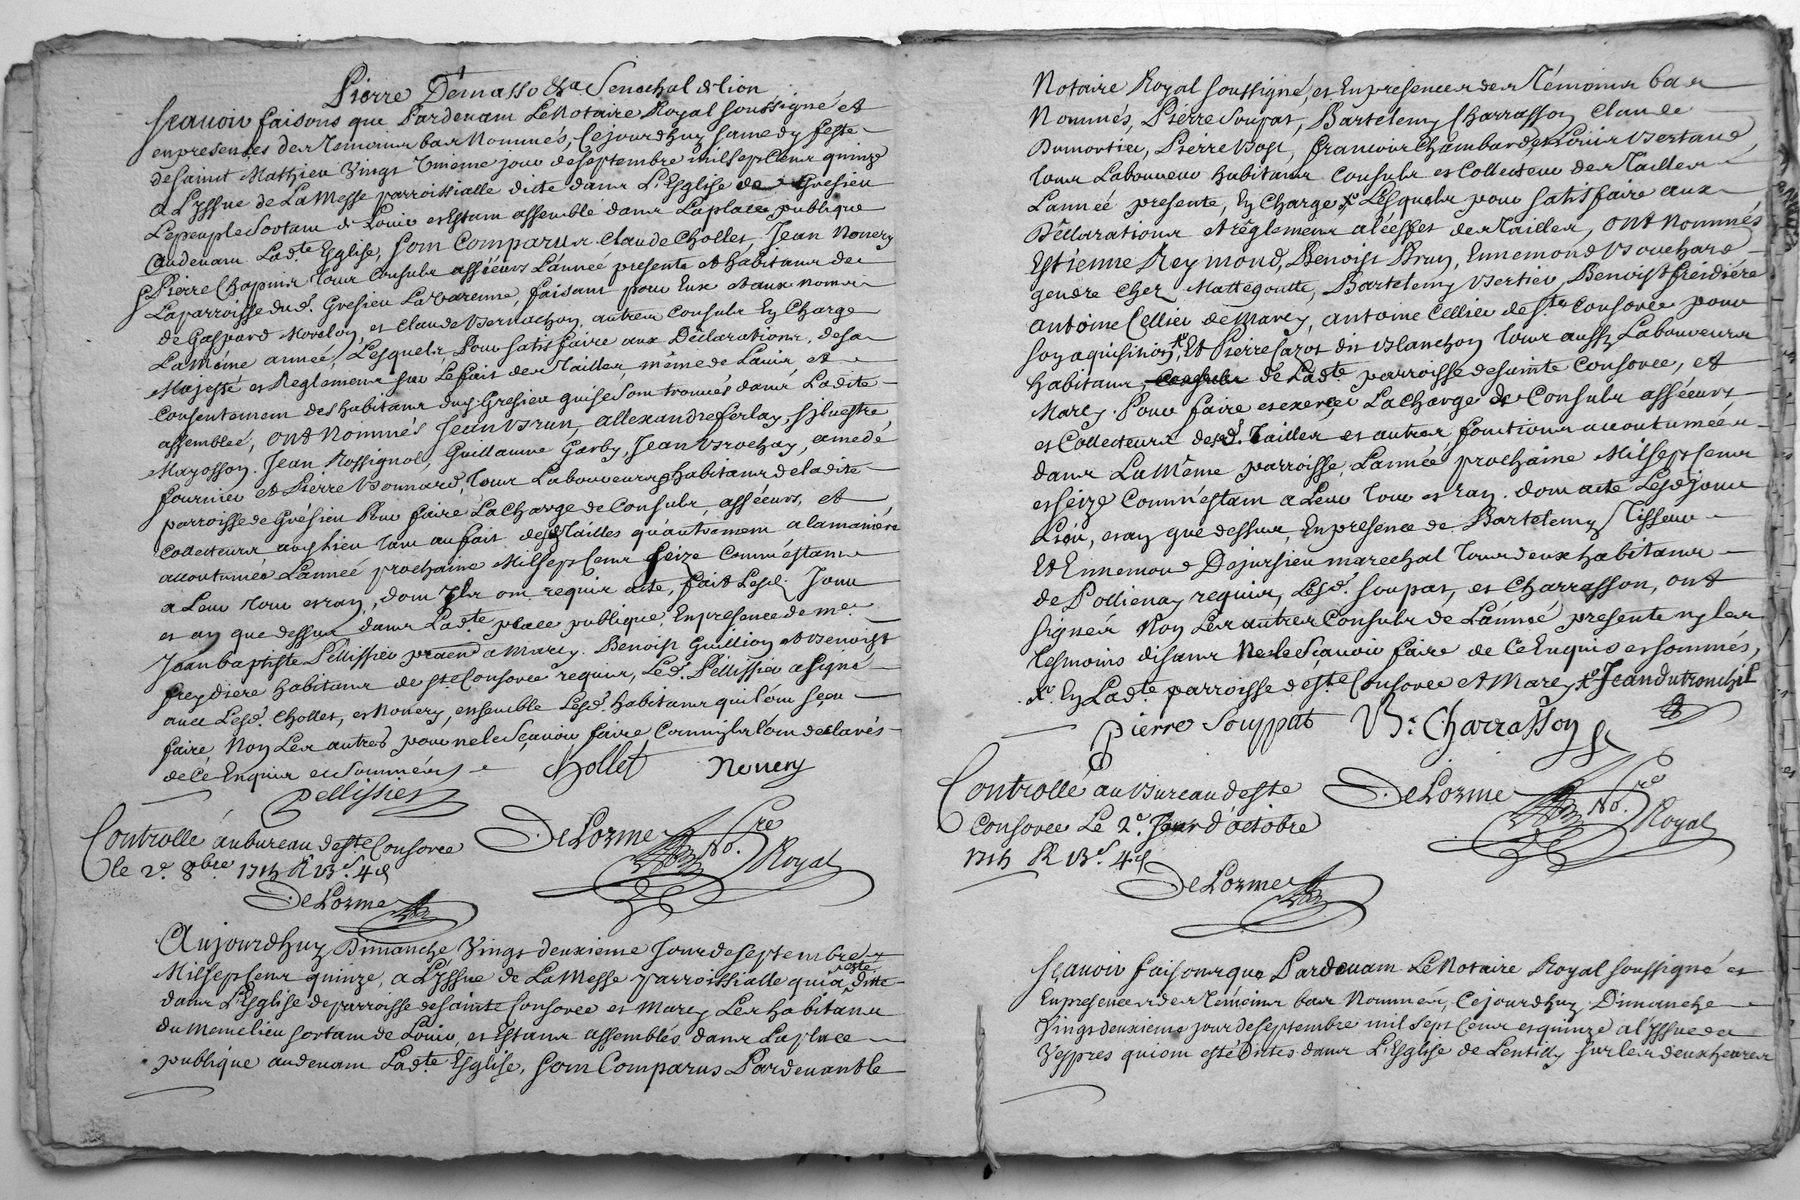 Pierre Demasso &a Senechal de lion
Sçauoir faisons que Pardeuant Le Notaire Royal soussigné et
en presences des Temoins bas Nommés, Cejourdhuy samedy feste
de saint Mathieu Vingt Unième jour de septembre mil sept Cens quinze
a L'yssue de La Messe parroissialle dicte dans L'Esglise de Gresieu
Le peuple sortant de L'ouir et Estant assemblé dans La place publique
audeuant Ladte Esglise, sont Comparus Claude Chollet, Jean Nouery
Pierre Chapuis tous Consuls asséeurs L'année presente et habitans de
La parroisse dud. Gresieu La Varenne, faisant pour Eux et aux noms
de Gaspard Morelon et Claude Vernachon autres Consuls En Charge
La même année, Lesquels Pour satisfaire aux Déclarations de sa
Majesté et Reglemens sur Le fait des Tailles, même de L'auis et
Consentement des habitans dud. Gresieu qui se sont trouués dans Ladite
assemblée, ont Nommés Jean Brun, allexandre ferlay, siluestre
Mayosson, Jean Rossignol, Guillaume Garby, Jean Brochay, amedé
fournier et Pierre Bonnard, tous Laboureurs habitans de ladite
parroisse de Grésieu Pour faire La Charge de Consuls, asséeurs, et
Collecteurs aud. lieu tant au fait desd. Tailles qu'autrement a la maniére
accoutumée L'année prochaine Mil sept Cens seize Comme estans
a Leur tour et ran, dont Ils ont requis acte, fait Lesd. Jour
et an que dessus dans Ladte place publique, En presence de me.
Jean baptiste Pellissier praen. a Marcy. Benoist Guillion et Benoist
freydiere habitans de ste. Consorce requis, Led. Pellissier a signé
auec Lesd. Chollet, et Nouery, ensemble Lesd. habitans qui l'ont sçeu
faire Non Les autres pour ne le Sçauoir faire Comm'ils l'ont declarés
de Ce Enquis et Sommés
Chollet Nouery
Pellissier
Controllé au bureau de ste Consorce
le 2e. 8bre 1715 R Vs. 4d
DeLorme No.re Royal
DeLorme
Aujourdhuy Dimanche, Vingt deuxieme Jour de septembre
Mil sept Cens quinze, a L'yssue de La Messe parroissialle qui a esté ditte
dans L'Esglise de parroisse de sainte Consorce et Marcy Les habitans
du meme lieu sortant de L'ouir, et Estans assemblés dans La place
publique audeuant Ladte Esglise, sont Comparus Pardeuant Le
Notaire Royal soussigné, et En presences des Témoins bas
Nommés, Pierre Soupat, Bartelemy Charrasson, Claude
Dumortier, Pierre Vogt, francois Chambard et Louis Bertaud,
tous Laboureurs habitans Consuls et Collecteurs des Tailles
L'année presente, En Charge x Lesquels pour satisfaire aux
Déclarations et réglemens a l'effet des Tailles, ont Nommés
Estienne Reymond, Benoist Brun, Ennemond Bouchard
gendre Chez Mattegoutte, Bartelemy Bertier, Benoist freidiére
antoine Cellier de Marcy, antoine Cellier de ste Consorce pour
son aquisition, Et Pierre sazot dit Blanchon tous aussy Laboureurs
habitans de Ladte parroisse de sainte Consorce, et
Marcy. Pour faire et exercer La Charge de Consuls asséeurs
et Collecteurs desd. Tailles et autres fonctions accoutumées
dans La Même parroisse, L'année prochaine Mil sept Cens
et seize Comm'estant a Leur tour et ran. dont acte Lesd. jour
Lieu, et an que dessus, En presence de Bartelemy Tisseur
Et Ennemond Dejursieu marechal tous deux habitans
de Pollienay requis, Lesd. soupat, et Charrasson, ont
signés Non Les autres Consuls de L'année presente ny les
tesmoins disans Ne le Sçauoir faire de Ce Enquis et sommés,
x En Ladte parroisse de ste. Consorce et Marcy x Jean dutronchil
Pierre Souppat B: Charrasson
Controllé au Bureau de ste
Consorce Le 2e. Jour d'octobre
1715 R Vs. 4d
DeLorme No.re Royal
DeLorme
Sçauoir faisons que Pardeuant Le Notaire Royal soussigné et
En presences des Témoins bas Nommés, Cejourdhuy Dimanche
Vingt deuxieme jour de septembre mil sept Cens et quinze a l'yssue de
Vespres qui ont esté Dites dans L'Esglise de Lentilly sur les deux heures